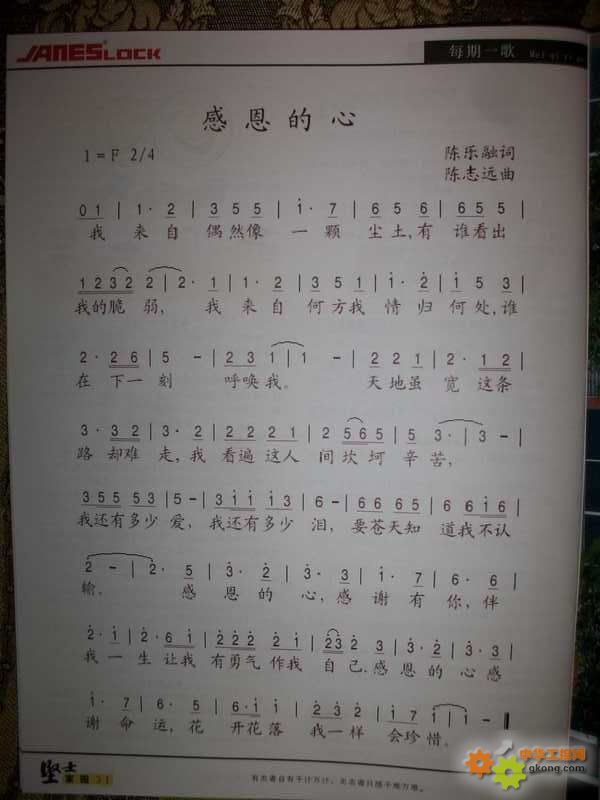 JANESLOCK
每期一歌
感恩的心
1=F 2/4
陈乐融词
陈志远曲
0 1 | 1· 2 | 3 5 5 | 1· 7 | 6 5 6 | 6 5 5 |
我 来自 偶然像 一颗 尘土,有 谁看出
1 2 3 2 2 | 2· 1 | 1· 2 | 3 5 1 | 1· 2 | 1 5 3 |
我的脆弱, 我 来自 何方我 情归 何处,谁
2· 2 6 | 5 - | 2 3 1 | 1 - | 2 2 1 | 2· 1 2 |
在 下一刻 呼唤我。 天地虽宽 这条
3· 3 2 | 3· 2 | 2 2 2 1 | 2 5 6 5 | 5 3· | 3 - |
路却难走,我 看遍这人 间坎坷辛苦,
3 5 5 5 5 3 | 5 - | 3 1 1 1 3 | 5 - | 6 6 6 5 | 6 6 1 6 |
我还有多少爱, 我还有多少泪, 要苍天知 道我不认
2 - | 2· 5 | 3· 2 | 3· 1 | 1· 7 | 6· 6 |
输。 感 恩的 心,感 谢有 你,伴
2· 1 | 2· 6 1 | 2 2 2 2 1 | 2 3 2 3 | 3· 2 | 3· 1 |
我一生让我有勇气作我自己.感恩的心感
1· 7 | 6· 5 | 6·1 1 | 2 3 2 | 1 7 1 | 1 - |
谢命运,花 开花落 我一样 会珍惜。
坚士
家园 31
有志者自有千计万计,无志者只感千难万难。
中华工控网
gkong.com